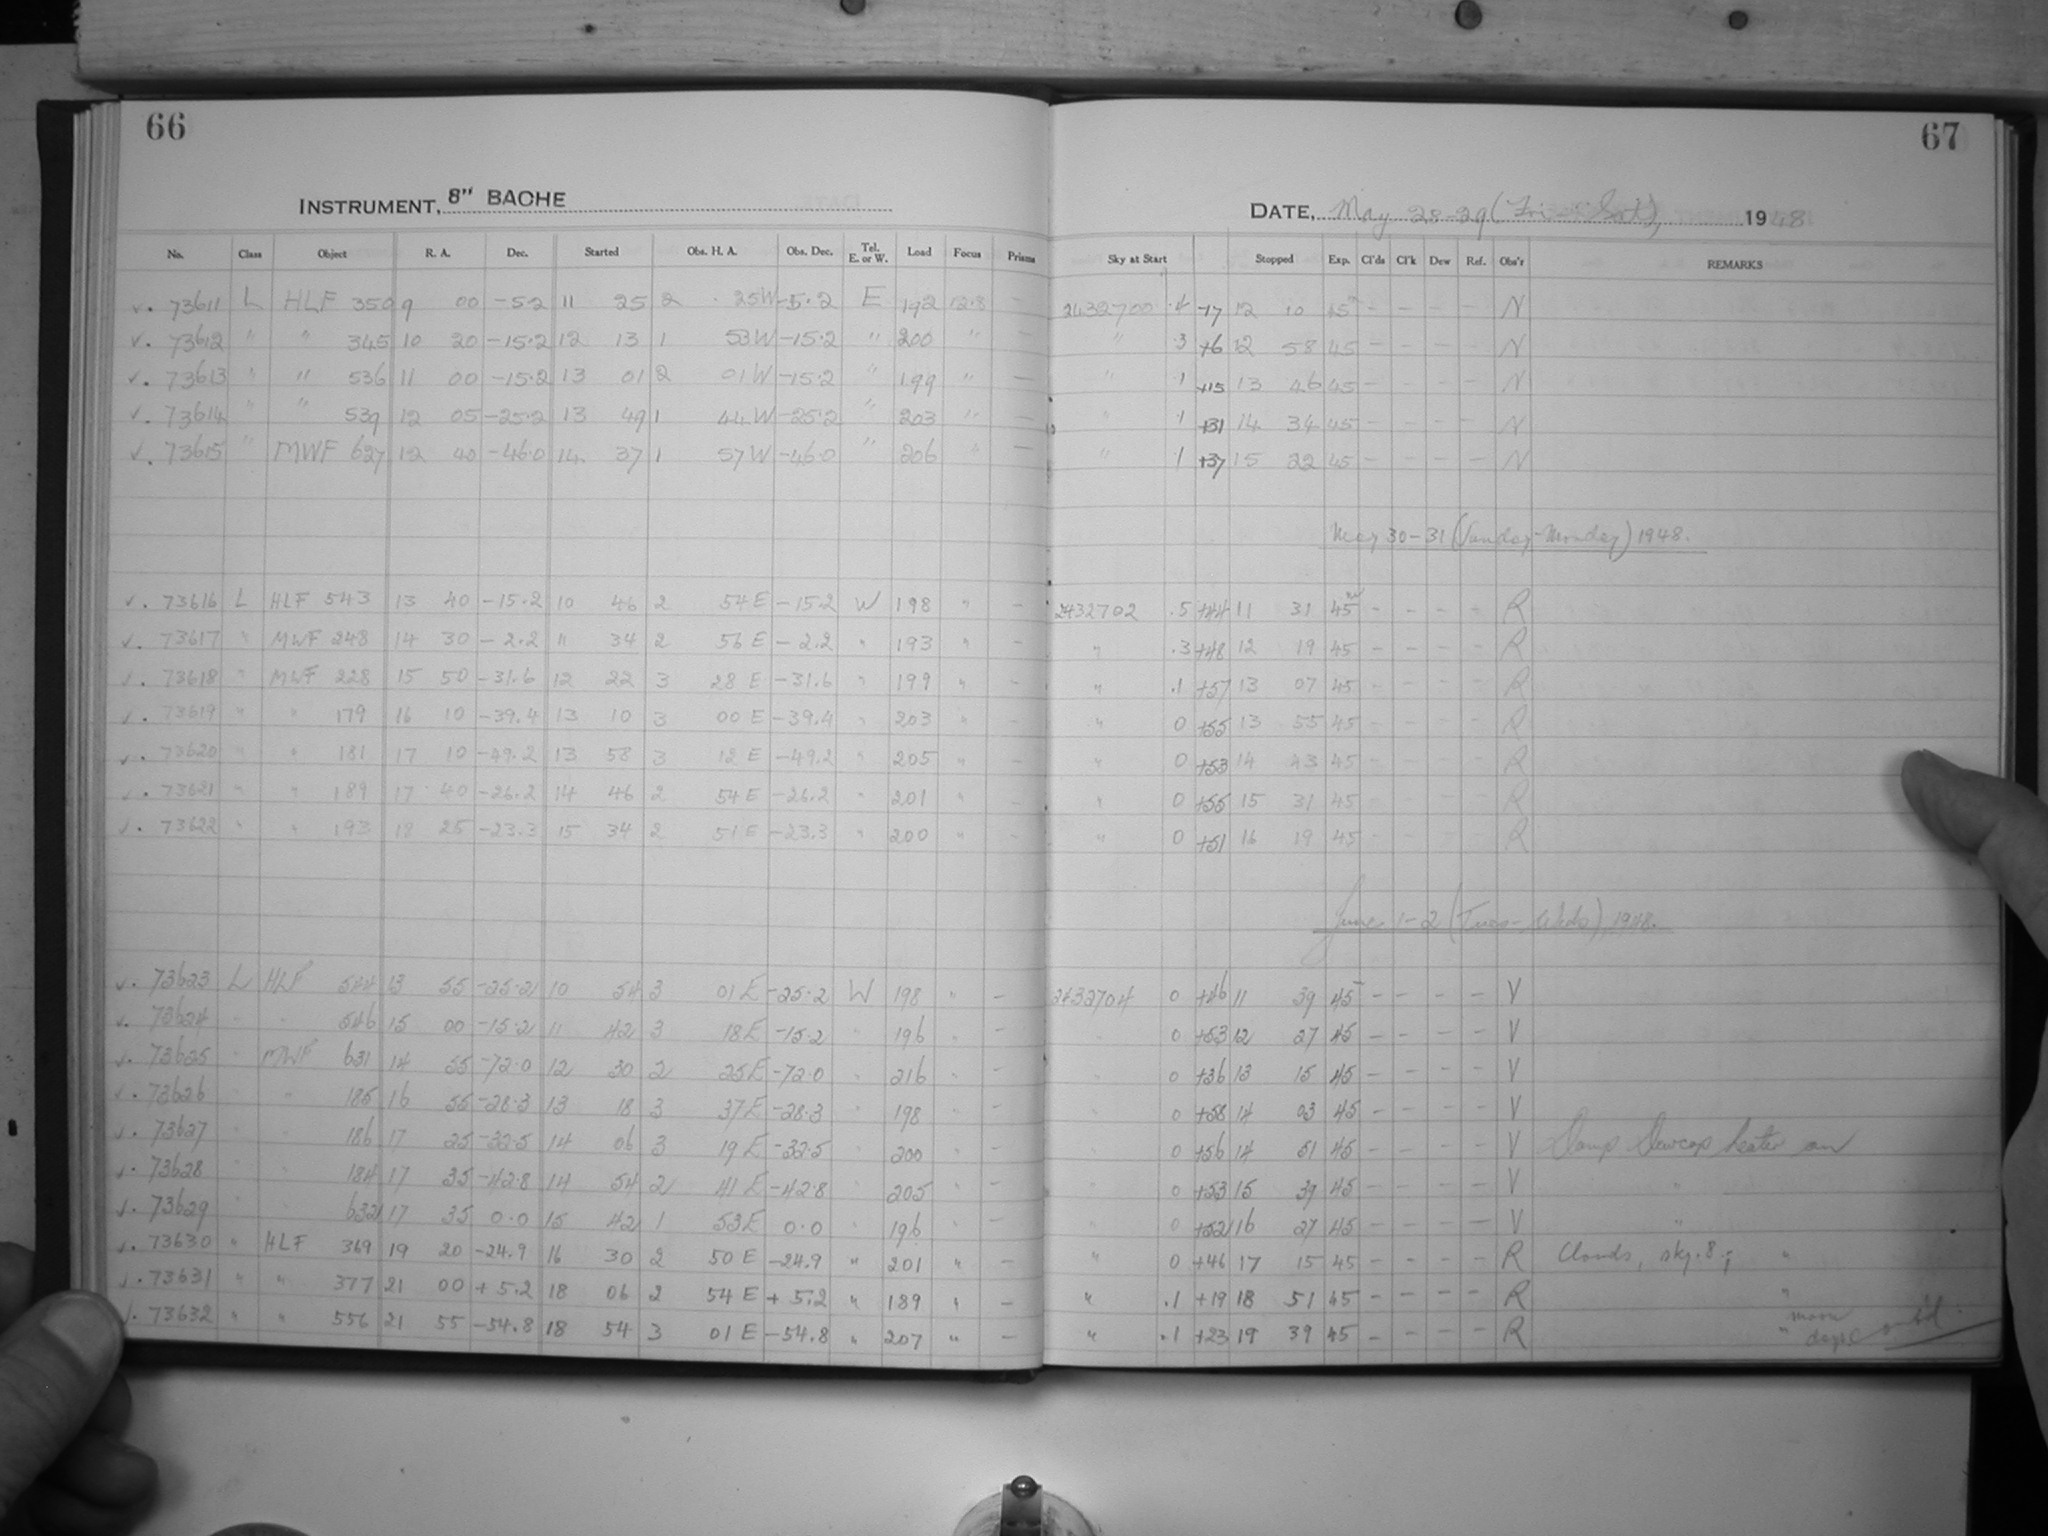 66
67
INSTRUMENT, 8" BACHE
DATE, May 28-29 (Fri - Sat), 1948
No. Class Object R. A. Dec. Started Obs. H. A. Obs. Dec. Tel. E. or W. Load Focus Prisms Sky at Start Stopped Exp. Cl'ds Cl'k Dew Ref. Obs'r REMARKS
v. 73611 L HLF 350 9 00 -5.2 11 25 2 25W -5.2 E 192 12.8 — 2432700 .4 -17 12 10 45 - - - - N
v. 73612 " " 345 10 20 -15.2 12 13 1 53W -15.2 " 200 " — " .3 +6 12 58 45 - - - - N
v. 73613 " " 536 11 00 -15.2 13 01 2 01W -15.2 " 199 " — " .1 +15 13 46 45 - - - - N
v. 73614 " " 539 12 05 -25.2 13 49 1 44W -25.2 " 203 " — " .1 +31 14 34 45 - - - - N
v. 73615 " MWF 627 12 40 -46.0 14 37 1 57W -46.0 " 206 " — " .1 +37 15 22 45 - - - - N
May 30-31 (Sunday-Monday) 1948.
v. 73616 L HLF 543 13 40 -15.2 10 46 2 54E -15.2 W 198 " - 2432702 .5 +44 11 31 45 - - - - R
v. 73617 " MWF 248 14 30 -2.2 11 34 2 56E -2.2 " 193 " - " .3 +48 12 19 45 - - - - R
v. 73618 " MWF 228 15 50 -31.6 12 22 3 28E -31.6 " 199 " - " .1 +57 13 07 45 - - - - R
v. 73619 " " 179 16 10 -39.4 13 10 3 00E -39.4 " 203 " - " 0 +55 13 55 45 - - - - R
v. 73620 " " 181 17 10 -49.2 13 58 3 12E -49.2 " 205 " - " 0 +53 14 43 45 - - - - R
v. 73621 " " 189 17 40 -26.2 14 46 2 54E -26.2 " 201 " - " 0 +55 15 31 45 - - - - R
v. 73622 " " 193 18 25 -23.3 15 34 2 51E -23.3 " 200 " - " 0 +51 16 19 45 - - - - R
June 1-2 (Tues-Weds), 1948.
v. 73623 L HLF 544 13 55 -25.2 10 54 3 01E -25.2 W 198 " - 2432704 0 +46 11 39 45 - - - - V
v. 73624 " " 546 15 00 -15.2 11 42 3 18E -15.2 " 196 " 0 +53 12 27 45 - - - - V
v. 73625 " MWF 631 14 55 -72.0 12 30 2 25E -72.0 " 216 " - " 0 +36 13 15 45 - - - - V
v. 73626 " 185 16 55 -28.3 13 18 3 37E -28.3 " 198 " - 0 +58 14 03 45 - - - - V
v. 73627 " " 186 17 25 -32.5 14 06 3 19E -32.5 " 200 " - 0 +56 14 51 45 - - - - V Damp Dewcap heater on
v. 73628 " " 184 17 35 -42.8 14 54 2 41E -42.8 " 205 " - 0 +53 15 39 45 - - - - V "
v. 73629 " 632 17 35 0.0 15 42 1 53E 0.0 " 196 " - 0 +52 16 27 45 - - - - V "
v. 73630 " HLF 369 19 20 -24.9 16 30 2 50E -24.9 " 201 " - " 0 +46 17 15 45 - - - - R Clouds, sky .8; "
v. 73631 " " 377 21 00 +5.2 18 06 2 54E +5.2 " 189 " - " .1 +19 18 51 45 - - - - R "
v. 73632 " " 556 21 55 -54.8 18 54 3 01E -54.8 " 207 " - " .1 +23 19 39 45 - - - - R " moon